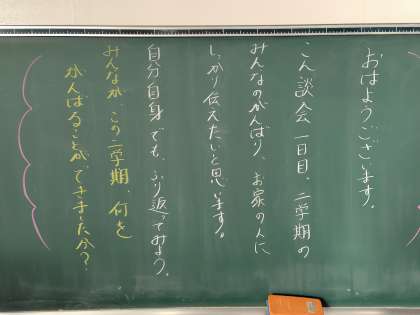 おはようございます。
こん談会一日目、二学期の
みんなのがんばり、お家の人に
しっかり伝えたいと思います。
自分自身でも、ふり返ってみよう。
みんなが、この二学期、何を
がんばることができましたか?